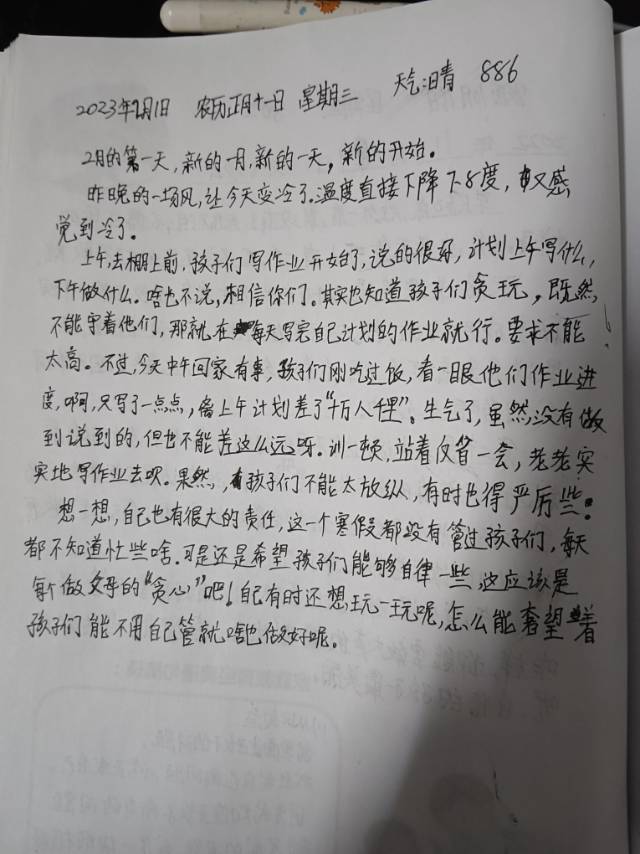 2023年2月1日 农历正月十一日 星期三 天气:晴 886
2月的第一天,新的一月,新的一天,新的开始。
昨晚的一场风,让今天变冷了。温度直接下降了8度,又感
觉到冷了。
上午,去棚上前,孩子们写作业开始了,说的很好,计划上午写什么,
下午做什么。啥也不说,相信你们。其实也知道孩子们贪玩,既然
不能守着他们,那就在每天写完自己计划的作业就行。要求不能
太高。不过,今天中午回家有事,孩子们刚吃过饭,看一眼他们作业进
度,啊,只写了一点点,离上午计划差了“十万八千里”。生气了,虽然没有做
到说到的,但也不能差这么远呀。训一顿,站着反省一会,老老实
实地写作业去吧。果然,孩子们不能太放纵,有时也得严厉些!
想一想,自己也有很大的责任,这一个寒假都没有管过孩子们,每天
都不知道忙些啥。可是还是希望孩子们能够自律一些,这应该是
每个做父母的“贪心”吧!自己有时还想玩一玩呢,怎么能奢望着
孩子们能不用自己管就啥也做好呢。